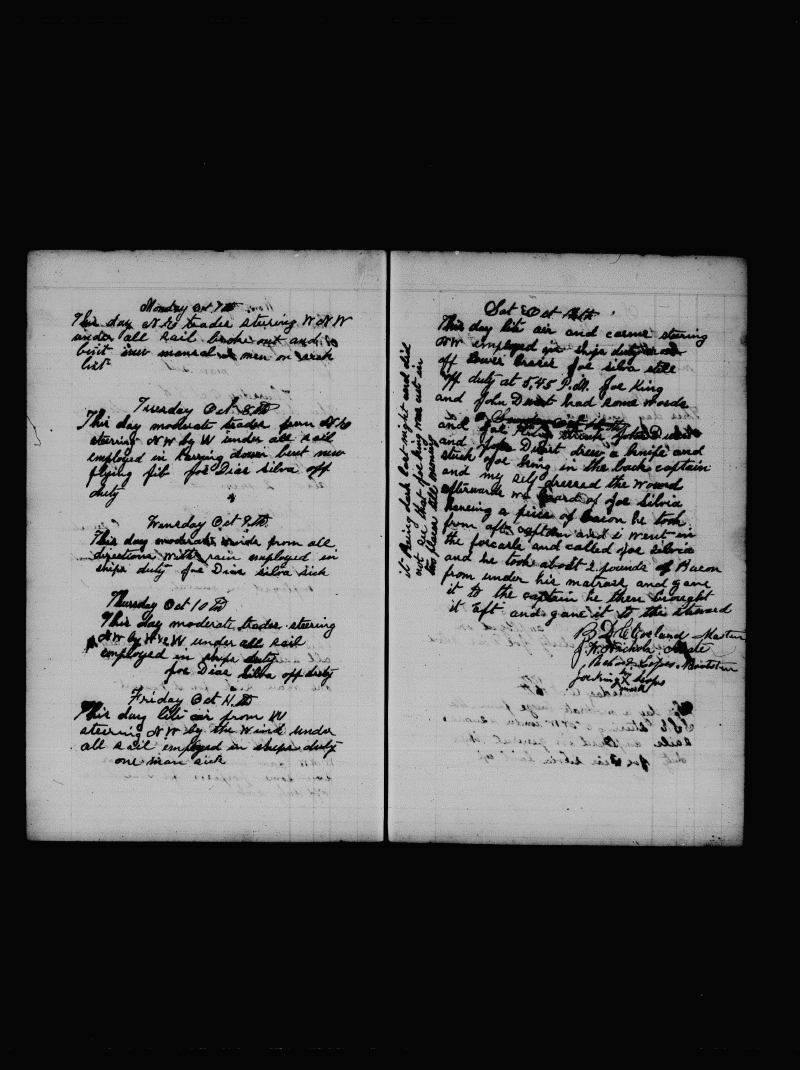 Monday Oct 7th
This day N E trades stearing W N W
under all sail broke out and
bent new mansal men on sick
list
Tuesday Oct 8th
This day moderate trades from N E
steering N W by W under all sail
employed in sending down bent new
flying jib Joe Dias Silva off
duty
Wensday Oct 9th
This day moderate winds from all
directions with rain employed in
ships duty Joe Dias Silva sick
Thursday Oct 10th
This day moderate trades steering
N W by W & W under all sail
employed in ships duty
Joe Dias Silva off duty
Friday Oct 11th
This day lite air from W
steering N W by the wind under
all sail employed in ships duty
one man sick
Sat Oct 12th
This day lite air and carme steering
N W employed in ships duty
off Joe Silva still
off duty at 5,45 P.M. Joe King
and John Duart had some words
and Joe King struck John Duart
and John Duart drew a knife and
stuck Joe King in the back captain
and my self dressed the wound
afterwards we heard of Joe Silvia
haveing a piece of bacon he took
from aft captain and i went in
the forcarle and called Joe Silvia
and he took about 2 pounds of Bacon
from under his matrass and gave
it to the captain he then brought
it eft and gave it to the steward
B D Cleveland Master
J. W. Nichols Mate
Lopes Boatster
Joeking X Lops
mark
it being dark last night and did
not see that Joe King was cut in
two places till morning